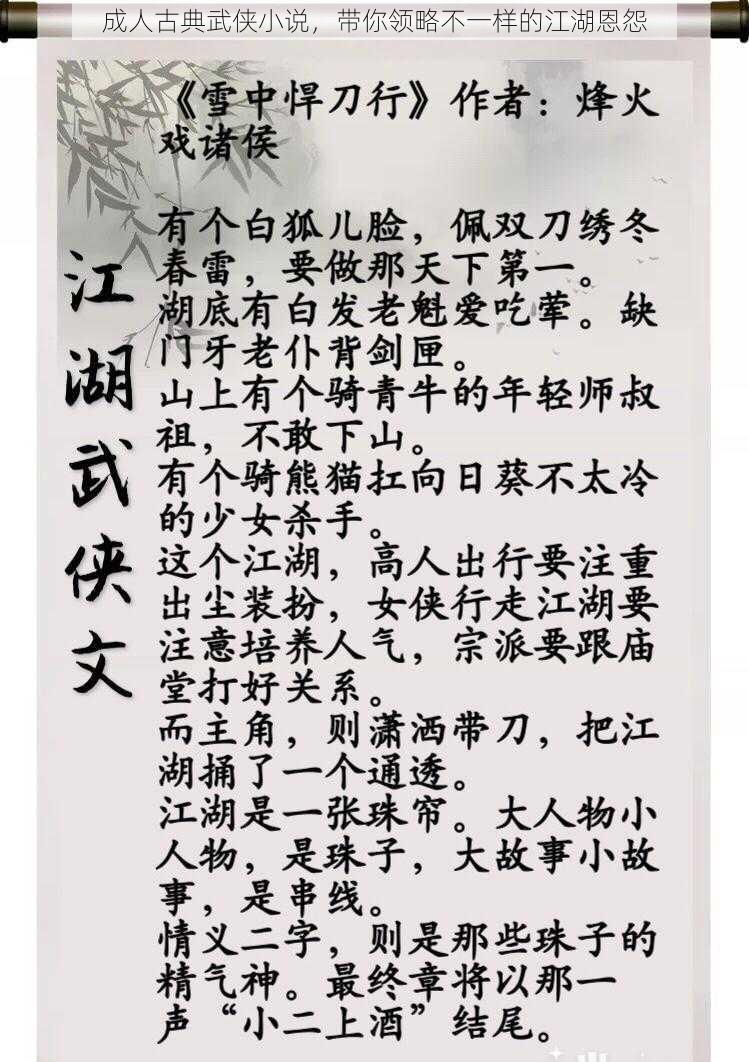 成人古典武侠小说，带你领略不一样的江湖恩怨
《雪中悍刀行》作者：烽火
戏诸侯
江湖武侠文
有个白狐儿脸，佩双刀绣冬
春雷，要做那天下第一。
湖底有白发老魁爱吃荤。缺
门牙老仆背剑匣。
山上有个骑青牛的年轻师叔
祖，不敢下山。
有个骑熊猫扛向日葵不太冷
的少女杀手。
这个江湖，高人出行要注重
出尘装扮，女侠行走江湖要
注意培养人气，宗派要跟庙
堂打好关系。
而主角，则潇洒带刀，把江
湖捅了一个通透。
江湖是一张珠帘。大人物小
人物，是珠子，大故事小故
事，是串线。
情义二字，则是那些珠子的
精气神。最终章将以那一
声“小二上酒”结尾。